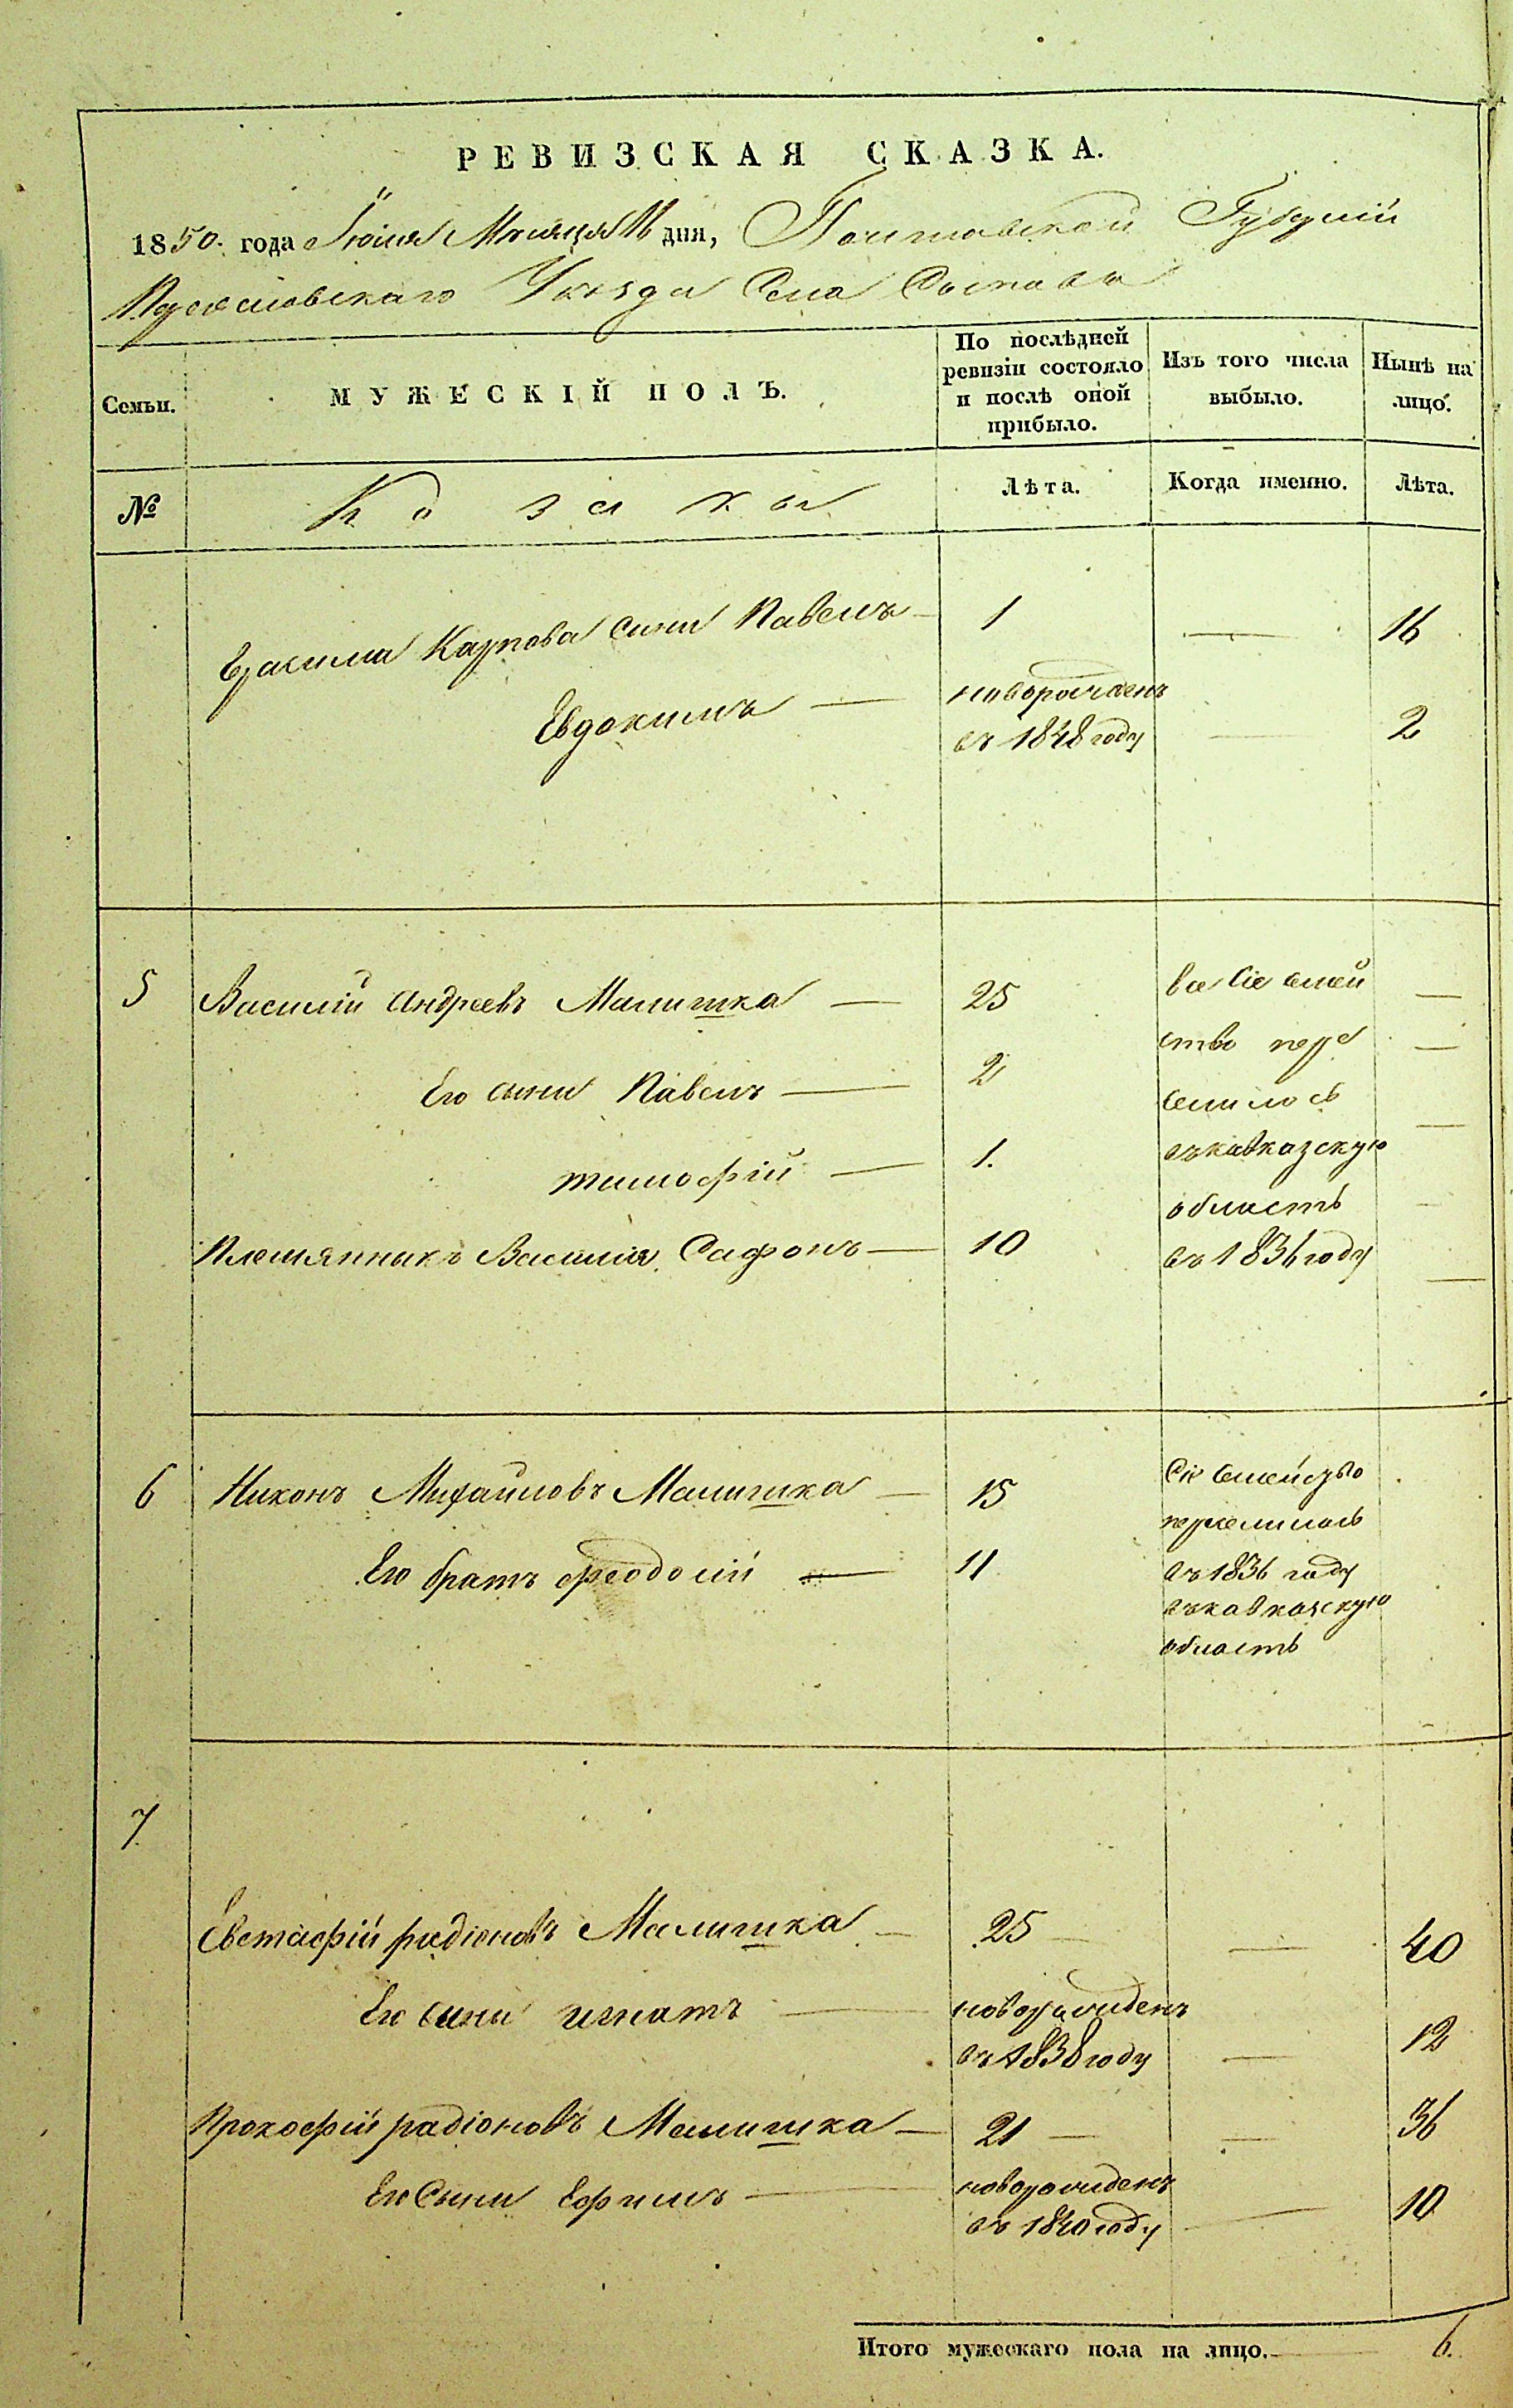 РЕВИЗСКАЯ СКАЗКА.
1850. года Іюля Месяца 16 дня, Полтавской Губерніи
Переяславскаго Уезда Села
Семьи.
МУЖЕСКІЙ ПОЛЪ.
По послѣдней
ревизіи состояло
и послѣ оной
прибыло.
Изъ того числа
выбыло.
Нынѣ на
лицо.
№
Козаки
Лѣта.
Когда именно.
Лѣта.
Ерасима Карпова сини Павелъ — 1 — 16
Евдокимъ —
новорожденъ
въ 1848 году — 2
5 Василій Андреевъ Малишка — 25
Его сини Павелъ — 2
тимофій — 1.
Племянныкъ Василія Сафонъ — 10
все сіе семей
ство пере
селилось
въ кавказскую
область
въ 1836 году
6 Никонъ Михайловъ Малишка — 15
Его братъ феодосій — 11
Сіе семейство
переселилось
въ 1836 году
въ кавказскую
область
7
Евстафій радіоновъ Малишка — 25 — 40
Его сини игнатъ —
новорожденъ
въ 1838 году — 12
Прокофій радіоновъ Малишка — 21 — 36
Его Сини Ефимъ —
новорожденъ
въ 1840 году — 10
Итого мужескаго пола на лицо. — 6.